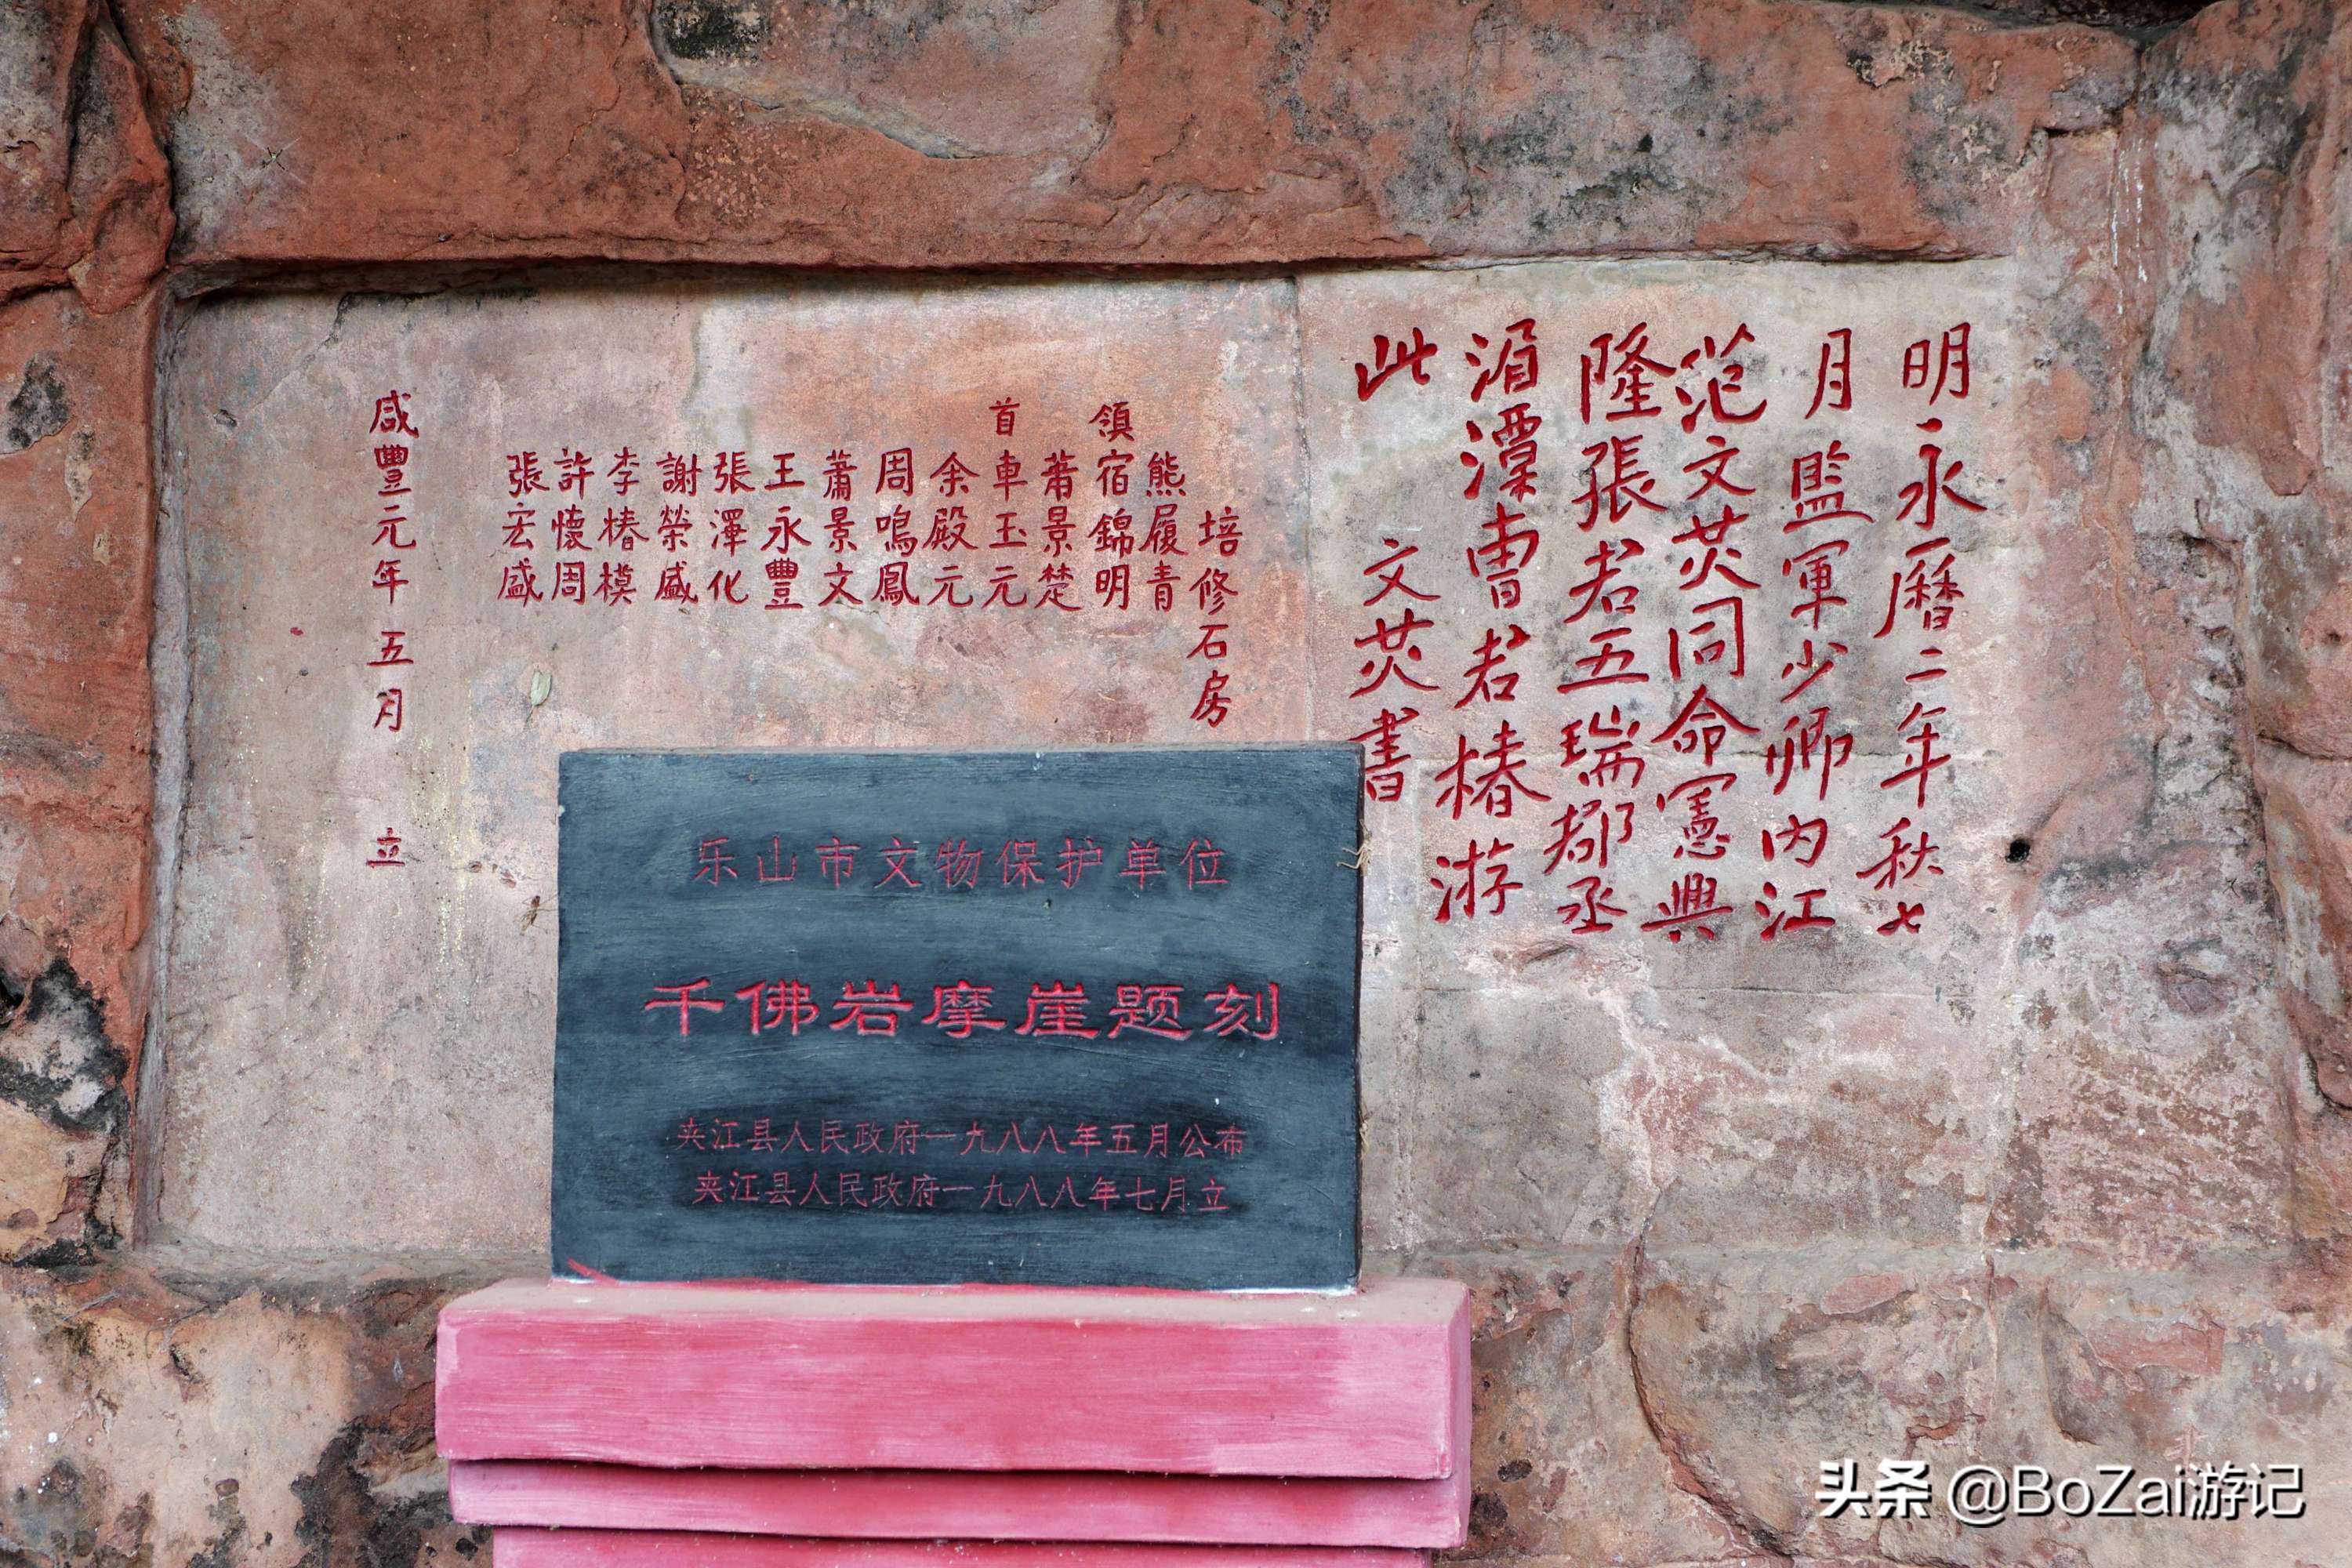 明永曆二年秋七
月監軍少卿内江
范文荧同命憲興
隆張君五瑞郡丞
湄潭曹君椿游
此
文荧書
培修石房
領
首
熊履青
宿錦明
莆景楚
車玉元
余殿元
周鳴鳳
蕭景文
王永豐
張澤化
謝榮盛
李椿模
許懷周
張宏盛
咸豐元年五月 立
乐山市文物保护单位
千佛岩摩崖题刻
夹江县人民政府一九八八年五月公布
夹江县人民政府一九八八年七月立
头条 @BoZai游记